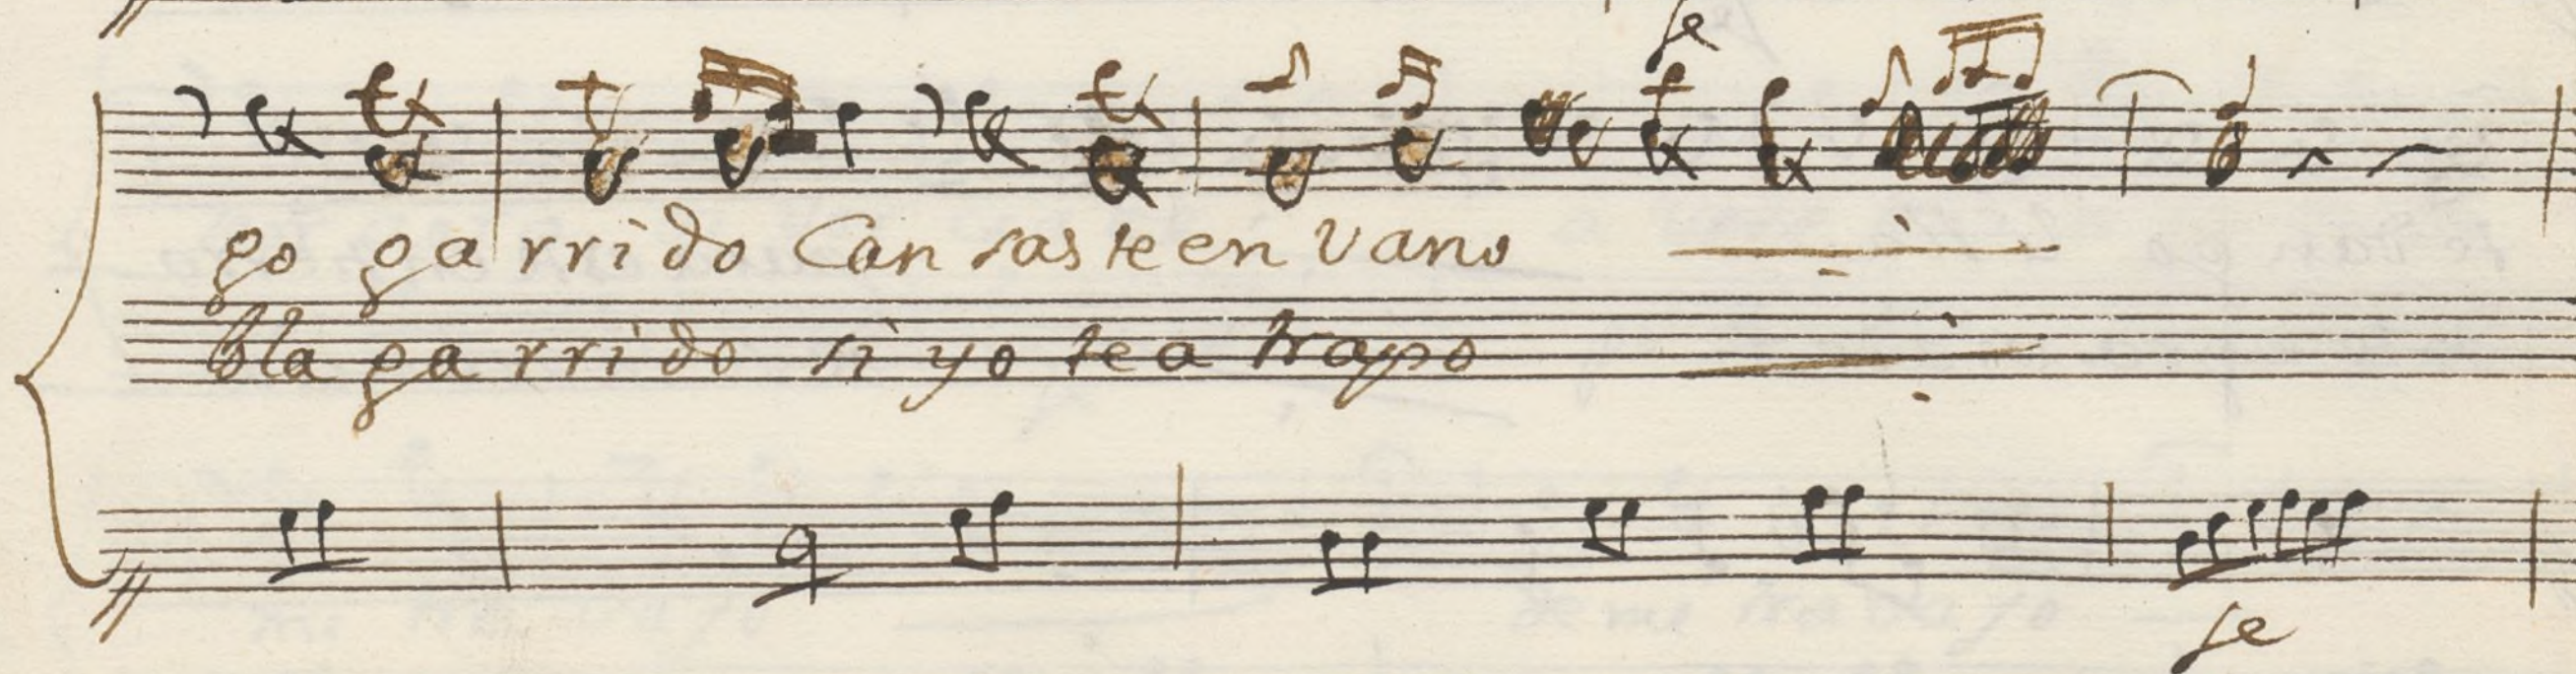 fe
go garrido Can sas te en vano
bla garrido si yo te a trapo
fe